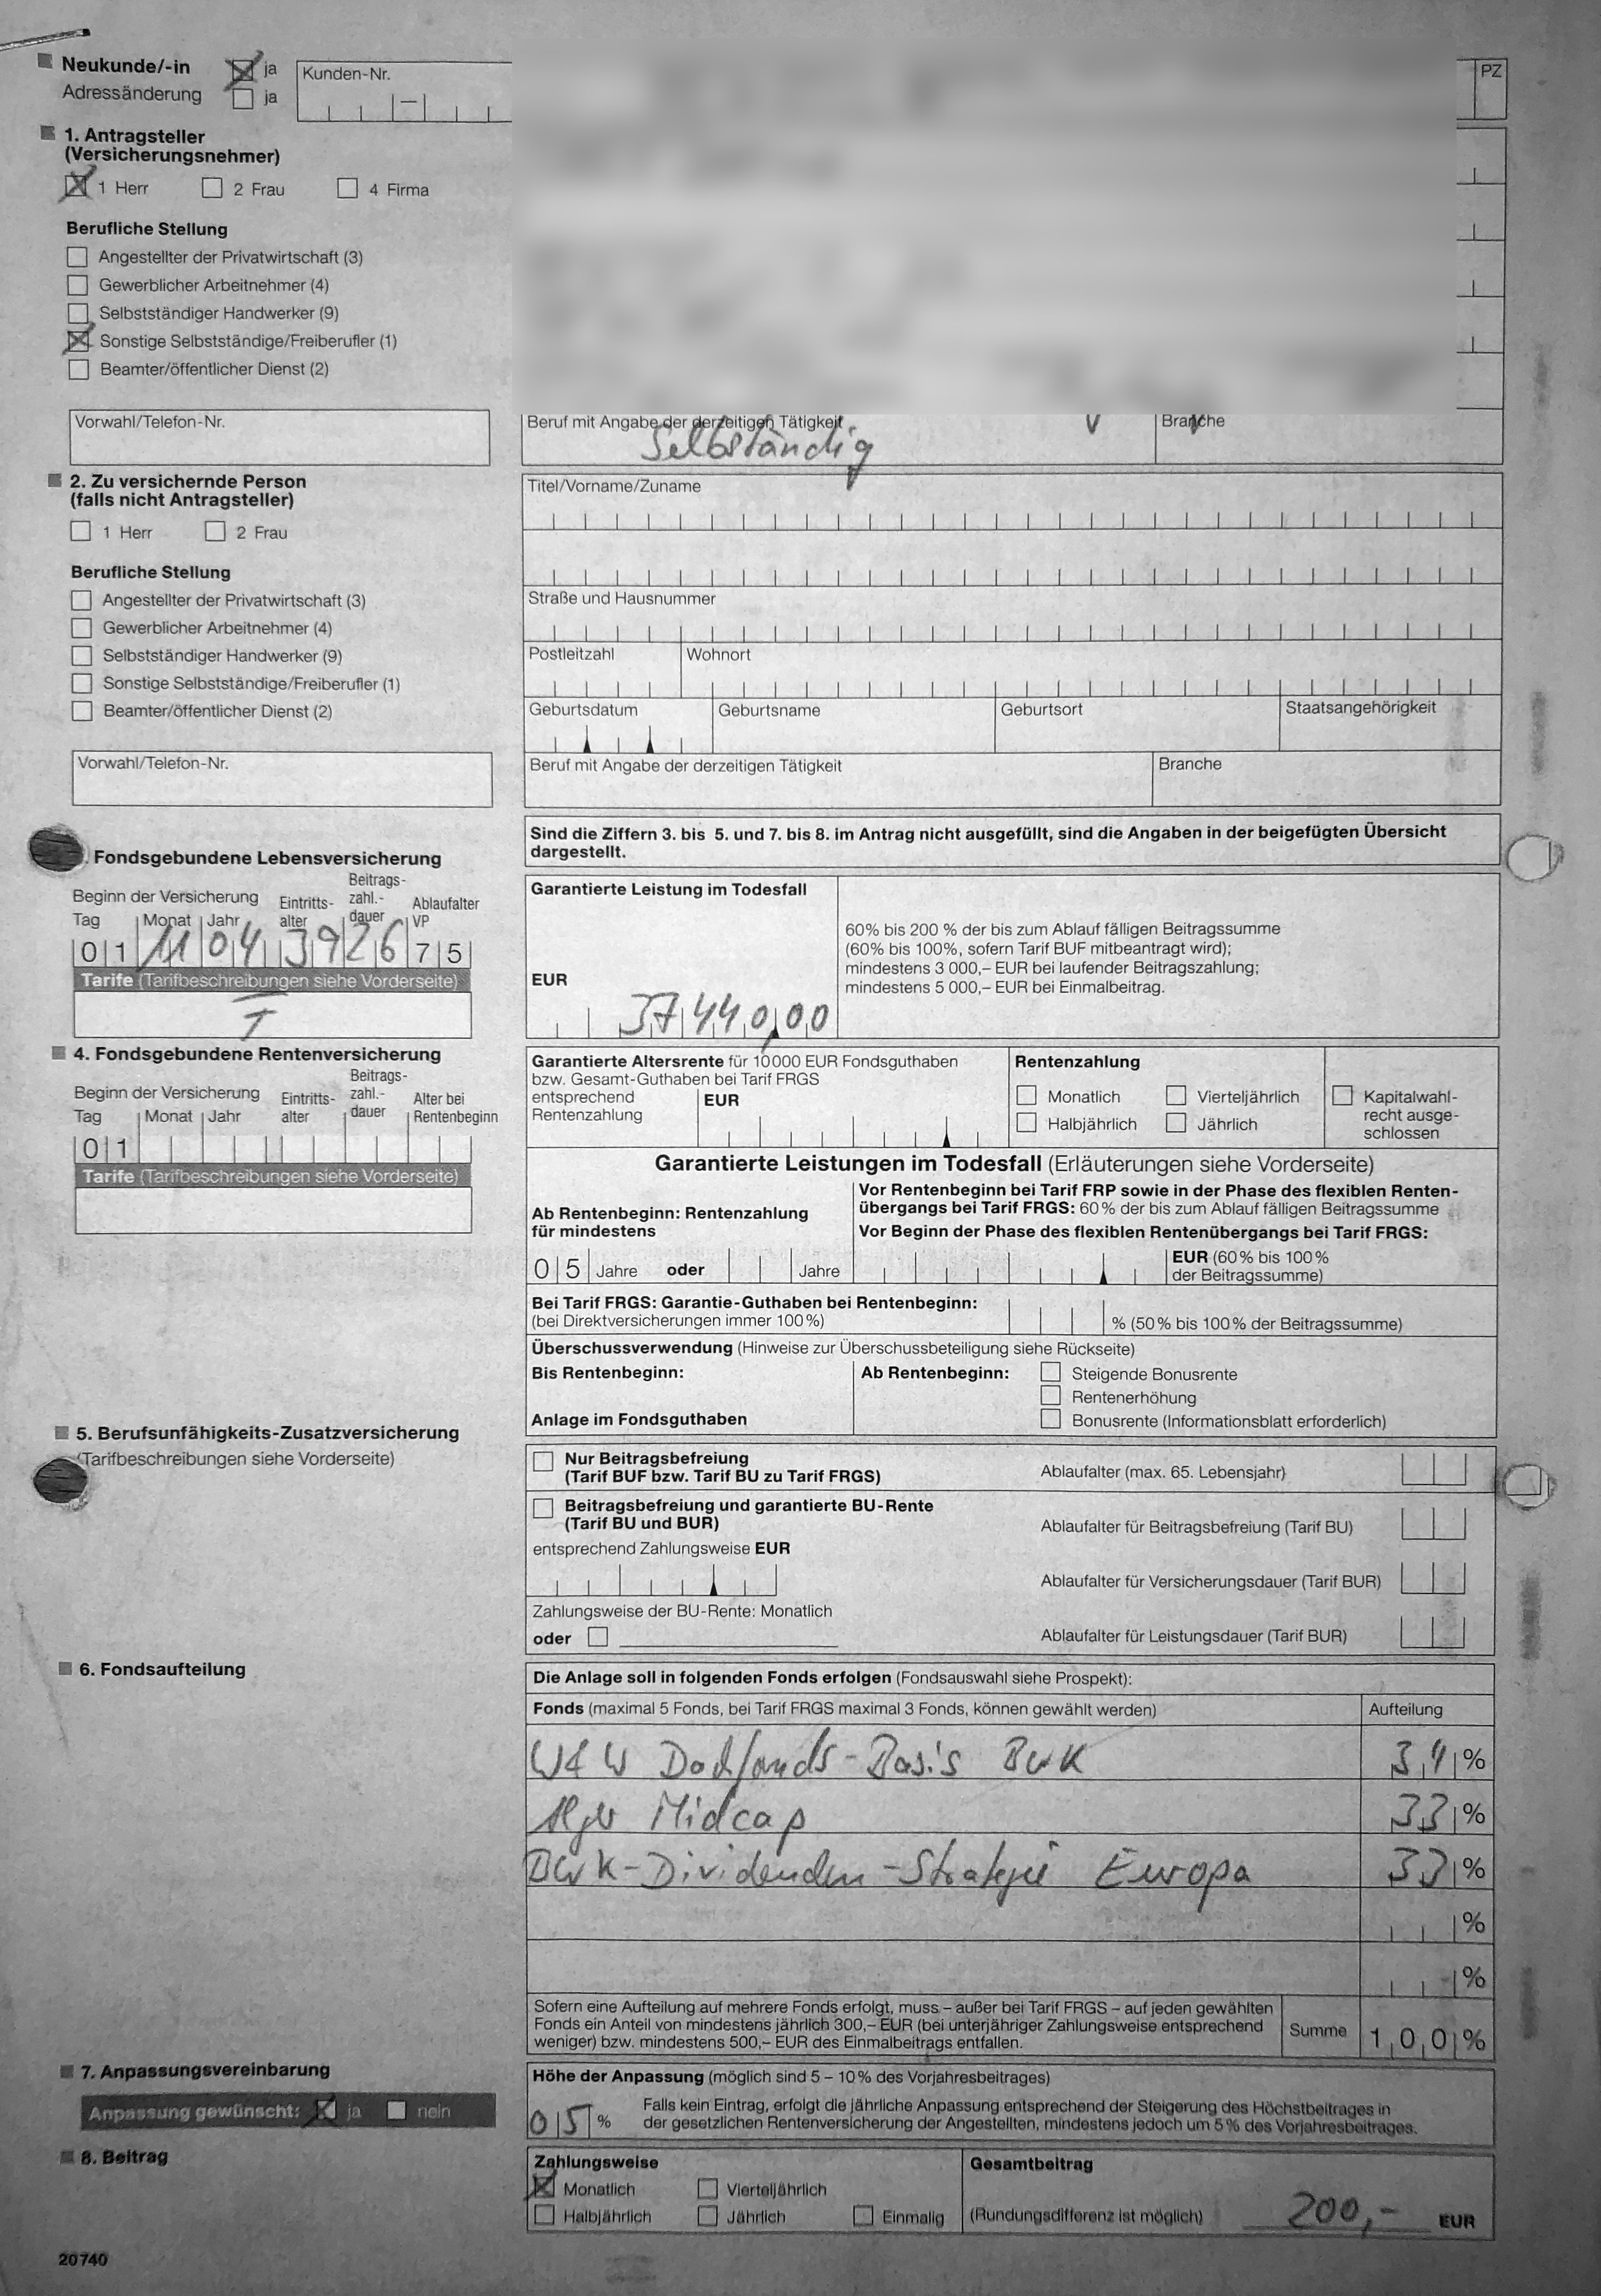 Neukunde/-in ja Kunden-Nr. PZ
Adressänderung ja
1. Antragsteller
(Versicherungsnehmer)
1 Herr 2 Frau 4 Firma
Berufliche Stellung
Angestellter der Privatwirtschaft (3)
Gewerblicher Arbeitnehmer (4)
Selbstständiger Handwerker (9)
Sonstige Selbstständige/Freiberufler (1)
Beamter/öffentlicher Dienst (2)
Vorwahl/Telefon-Nr.
Beruf mit Angabe der derzeitigen Tätigkeit Branche
Selbständig
2. Zu versichernde Person
(falls nicht Antragsteller)
1 Herr 2 Frau
Berufliche Stellung
Angestellter der Privatwirtschaft (3)
Gewerblicher Arbeitnehmer (4)
Selbstständiger Handwerker (9)
Sonstige Selbstständige/Freiberufler (1)
Beamter/öffentlicher Dienst (2)
Vorwahl/Telefon-Nr.
Titel/Vorname/Zuname
Straße und Hausnummer
Postleitzahl Wohnort
Geburtsdatum Geburtsname Geburtsort Staatsangehörigkeit
Beruf mit Angabe der derzeitigen Tätigkeit Branche
Sind die Ziffern 3. bis 5. und 7. bis 8. im Antrag nicht ausgefüllt, sind die Angaben in der beigefügten Übersicht
dargestellt.
Fondsgebundene Lebensversicherung
Beginn der Versicherung Eintritts- alter Beitrags- zahl.- dauer Ablaufalter VP
Tag Monat Jahr
01 11 04 39 26 75
Tarife (Tarifbeschreibungen siehe Vorderseite)
Garantierte Leistung im Todesfall
EUR
37440,00
60% bis 200 % der bis zum Ablauf fälligen Beitragssumme
(60% bis 100%, sofern Tarif BUF mitbeantragt wird);
mindestens 3 000,– EUR bei laufender Beitragszahlung;
mindestens 5 000,– EUR bei Einmalbeitrag.
4. Fondsgebundene Rentenversicherung
Beginn der Versicherung Eintritts- alter Beitrags- zahl.- dauer Alter bei Rentenbeginn
Tag Monat Jahr
01
Tarife (Tarifbeschreibungen siehe Vorderseite)
Garantierte Altersrente für 10000 EUR Fondsguthaben
bzw. Gesamt-Guthaben bei Tarif FRGS
entsprechend EUR
Rentenzahlung
Rentenzahlung
Monatlich Vierteljährlich
Halbjährlich Jährlich
Kapitalwahl-
recht ausge-
schlossen
Garantierte Leistungen im Todesfall (Erläuterungen siehe Vorderseite)
Ab Rentenbeginn: Rentenzahlung
für mindestens
05 Jahre oder Jahre
Vor Rentenbeginn bei Tarif FRP sowie in der Phase des flexiblen Renten-
übergangs bei Tarif FRGS: 60% der bis zum Ablauf fälligen Beitragssumme
Vor Beginn der Phase des flexiblen Rentenübergangs bei Tarif FRGS:
EUR (60% bis 100%
der Beitragssumme)
Bei Tarif FRGS: Garantie-Guthaben bei Rentenbeginn:
(bei Direktversicherungen immer 100%) % (50% bis 100% der Beitragssumme)
Überschussverwendung (Hinweise zur Überschussbeteiligung siehe Rückseite)
Bis Rentenbeginn: Ab Rentenbeginn: Steigende Bonusrente
Rentenerhöhung
Anlage im Fondsguthaben Bonusrente (Informationsblatt erforderlich)
5. Berufsunfähigkeits-Zusatzversicherung
(Tarifbeschreibungen siehe Vorderseite)
Nur Beitragsbefreiung
(Tarif BUF bzw. Tarif BU zu Tarif FRGS) Ablaufalter (max. 65. Lebensjahr)
Beitragsbefreiung und garantierte BU-Rente
(Tarif BU und BUR) Ablaufalter für Beitragsbefreiung (Tarif BU)
entsprechend Zahlungsweise EUR
Ablaufalter für Versicherungsdauer (Tarif BUR)
Zahlungsweise der BU-Rente: Monatlich
oder Ablaufalter für Leistungsdauer (Tarif BUR)
6. Fondsaufteilung
Die Anlage soll in folgenden Fonds erfolgen (Fondsauswahl siehe Prospekt):
Fonds (maximal 5 Fonds, bei Tarif FRGS maximal 3 Fonds, können gewählt werden) Aufteilung
W&W Dachfonds-Basis BWK 34 %
Midcap 33 %
BWK-Dividenden-Strategie Europa 33 %
%
%
Sofern eine Aufteilung auf mehrere Fonds erfolgt, muss – außer bei Tarif FRGS – auf jeden gewählten
Fonds ein Anteil von mindestens jährlich 300,– EUR (bei unterjähriger Zahlungsweise entsprechend
weniger) bzw. mindestens 500,– EUR des Einmalbeitrags entfallen.
Summe 100 %
7. Anpassungsvereinbarung
Anpassung gewünscht: ja nein
Höhe der Anpassung (möglich sind 5 – 10% des Vorjahresbeitrages)
05 %
Falls kein Eintrag, erfolgt die jährliche Anpassung entsprechend der Steigerung des Höchstbeitrages in
der gesetzlichen Rentenversicherung der Angestellten, mindestens jedoch um 5% des Vorjahresbeitrages.
8. Beitrag
Zahlungsweise
Monatlich Vierteljährlich
Halbjährlich Jährlich Einmalig
Gesamtbeitrag
(Rundungsdifferenz ist möglich) 200,- EUR
20740